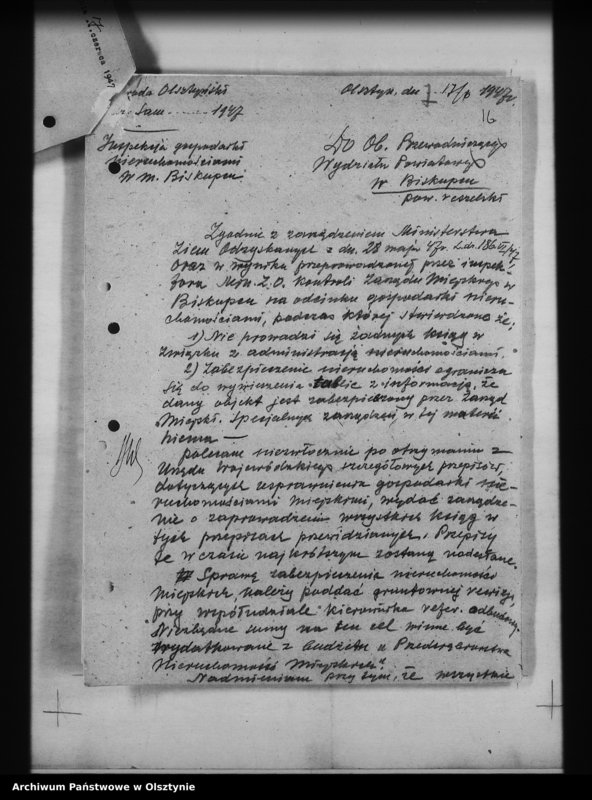 czerwca 1947
Olsztyński
Olsztyn, dn 17/ 1947r.
Sam. 1947
16
Inspekcja gospodarki
nieruchomościami
w m. Biskupcu
Do Ob. Przewodniczącego
Wydziału Powiatowego
w Biskupcu
pow. reszelski
Zgodnie z zarządzeniem Ministerstwa
Ziem Odzyskanych z dn. 28 maja 47r. L.dz.
oraz w wyniku przeprowadzonej przez inspek-
tora Min. Z.O. kontroli Zarządu Miejskiego w
Biskupcu na odcinku gospodarki nieru-
chomościami, podczas której stwierdzono że:
1) Nie prowadzi się żadnych ksiąg w
związku z administracją nieruchomościami.
2) Zabezpieczenie nieruchomości ogranicza
się do wywieszenia tablic z informacją, że
dany objekt jest zabezpieczony przez Zarząd
Miejski. Specjalnych zarządzeń w tej materii
niema —
polecam niezwłocznie po otrzymaniu z
Urzędu Wojewódzkiego szczegółowych przepisów,
dotyczących usprawnienia gospodarki nie-
ruchomościami miejskimi, wydać zarządze-
nie o zaprowadzeniu wszystkich ksiąg w
tych przepisach przewidzianych. Przepisy
te w czasie najkrótszym zostaną nadesłane.
Sprawę zabezpieczenia nieruchomości
miejskich, należy poddać gruntownej rewizji,
przy współudziale kierownika refer. odbudowy.
Niezbędne sumy na ten cel winne być
wydatkowane z budżetu "Przedsiębiorstwa
Nieruchomości Miejskich".
Nadmieniam przy tym, że wszystkie
Archiwum Państwowe w Olsztynie